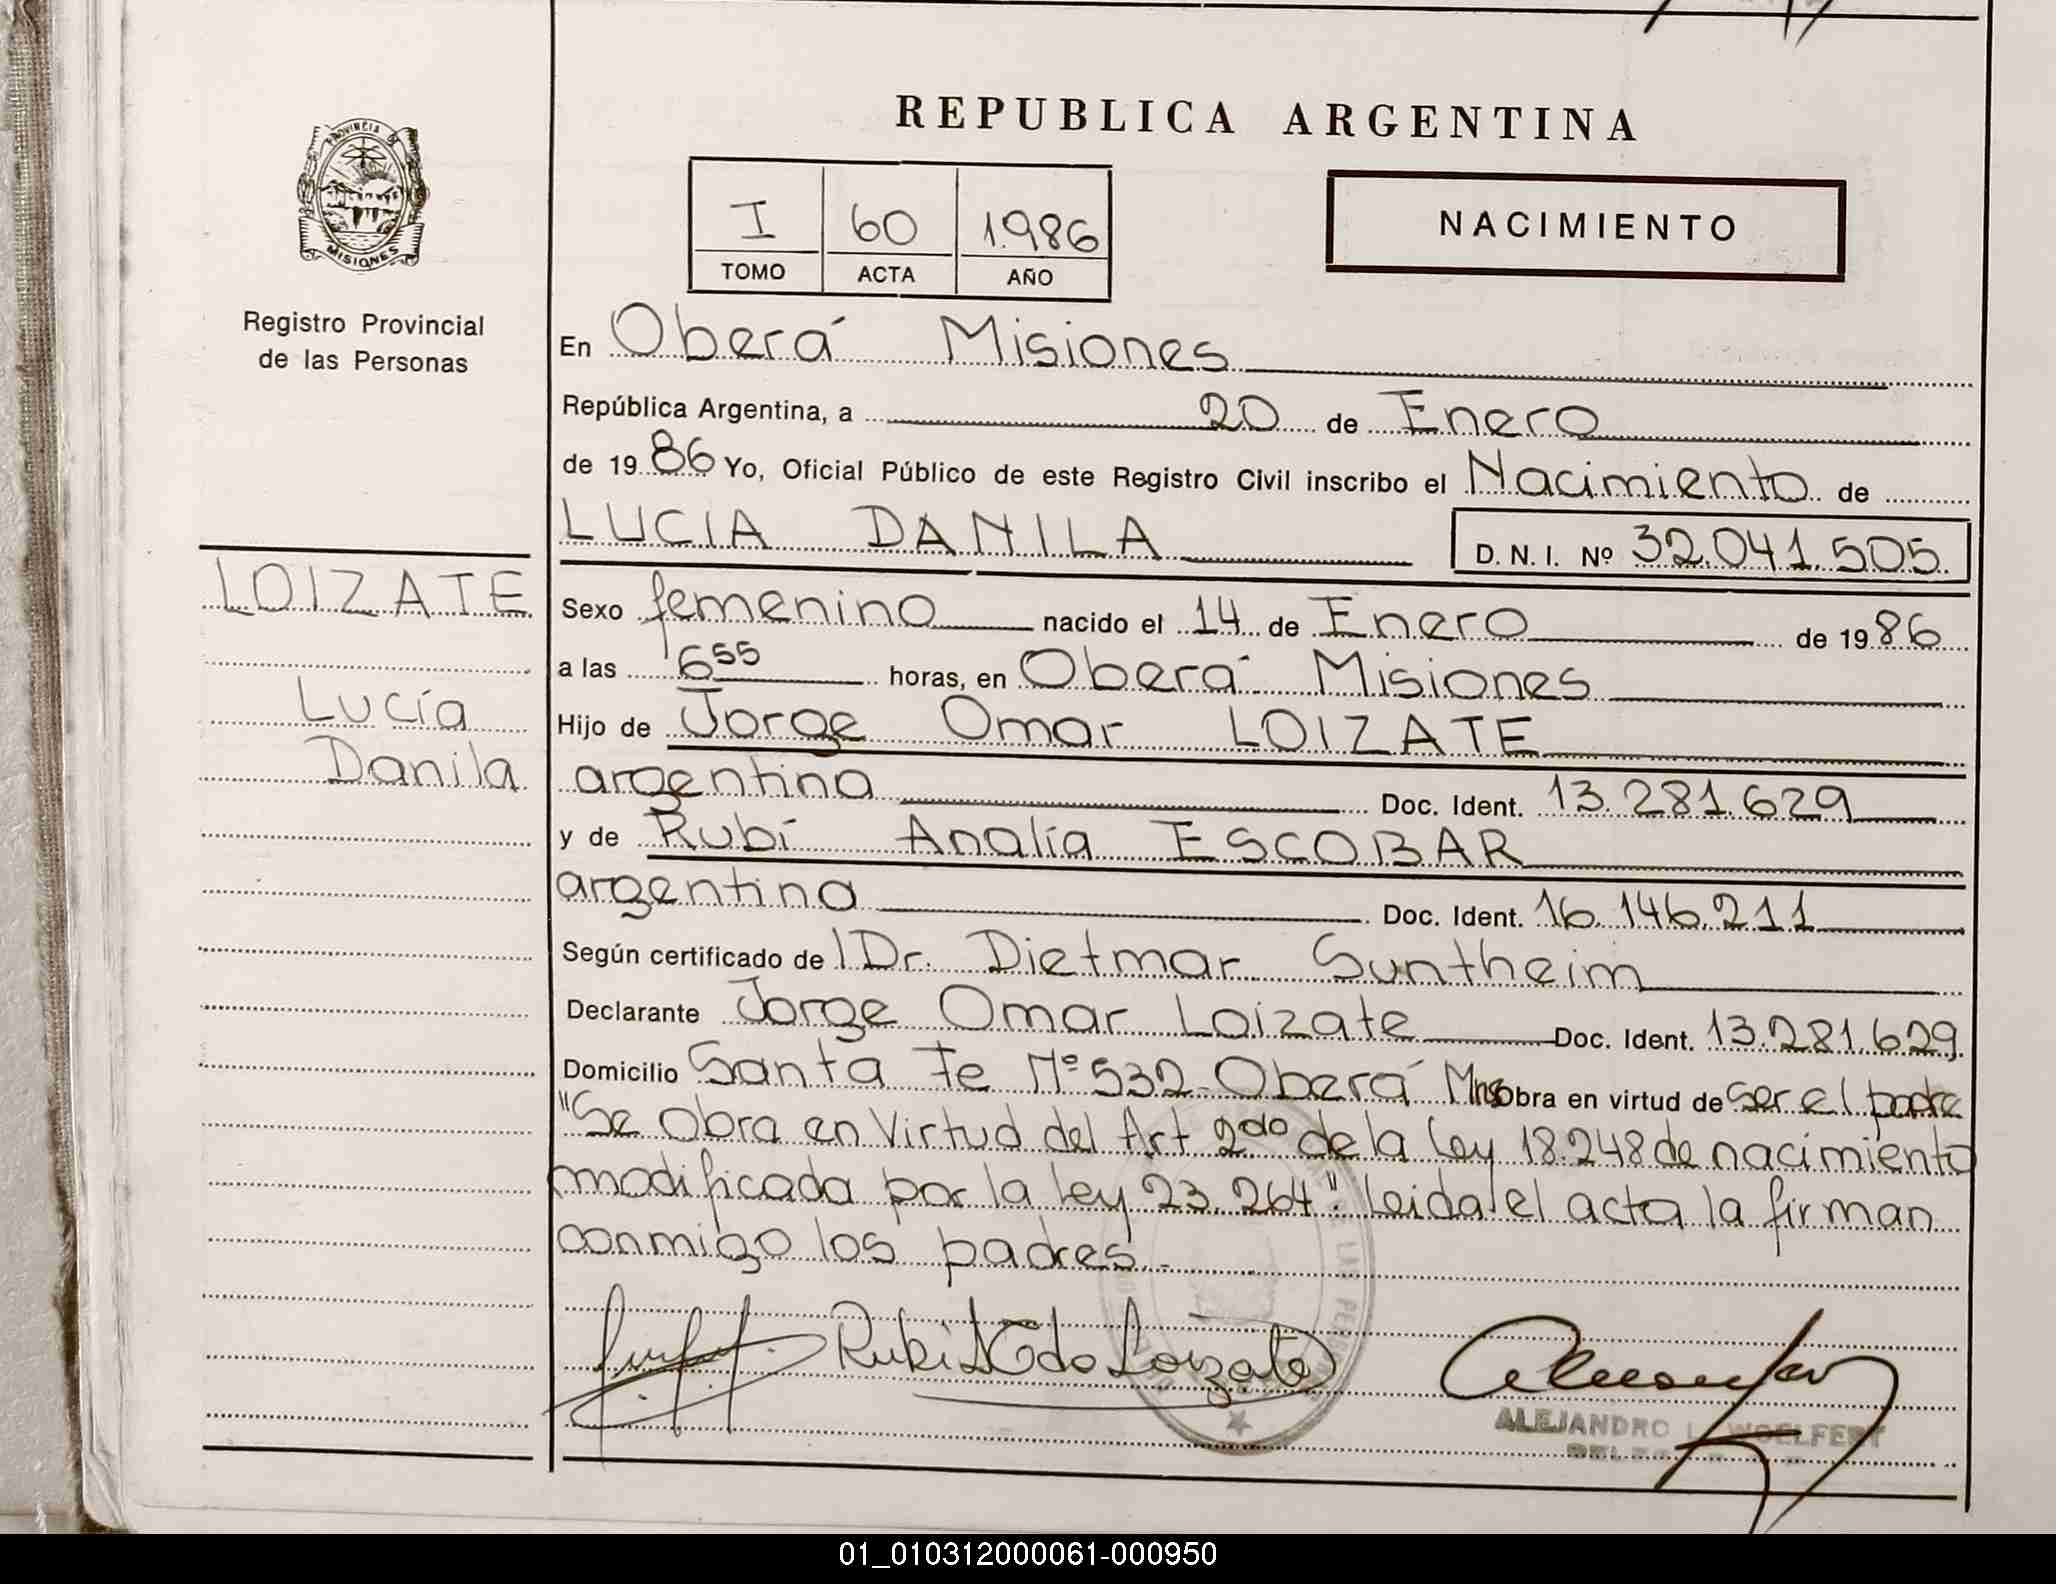 REPUBLICA ARGENTINA
PROVINCIA DE
MISIONES
Registro Provincial
de las Personas
I 60 1.986
TOMO ACTA AÑO
NACIMIENTO
En Oberá Misiones
República Argentina, a 20 de Enero
de 1986 Yo, Oficial Público de este Registro Civil inscribo el Nacimiento de
LUCIA DANILA D. N. I. Nº 32.041.505.
LOIZATE
Lucía
Danila
Sexo femenino nacido el 14 de Enero de 1986
a las 6 55 horas, en Oberá Misiones
Hijo de Jorge Omar LOIZATE
argentino Doc. Ident. 13.281.629
y de Rubí Analía ESCOBAR
argentina Doc. Ident. 16.146.211
Según certificado de l Dr. Dietmar Suntheim
Declarante Jorge Omar Loizate Doc. Ident. 13.281.629
Domicilio Santa Fe Nº 532 Oberá Mnes obra en virtud de ser el padre
"Se Obra en Virtud del Art 2do de la Ley 18.248 de nacimiento
modificada por la Ley 23.264". Leida el acta la firman
conmigo los padres.-
de Loizate
ALEJANDRO L. WOELFERT
01_010312000061-000950